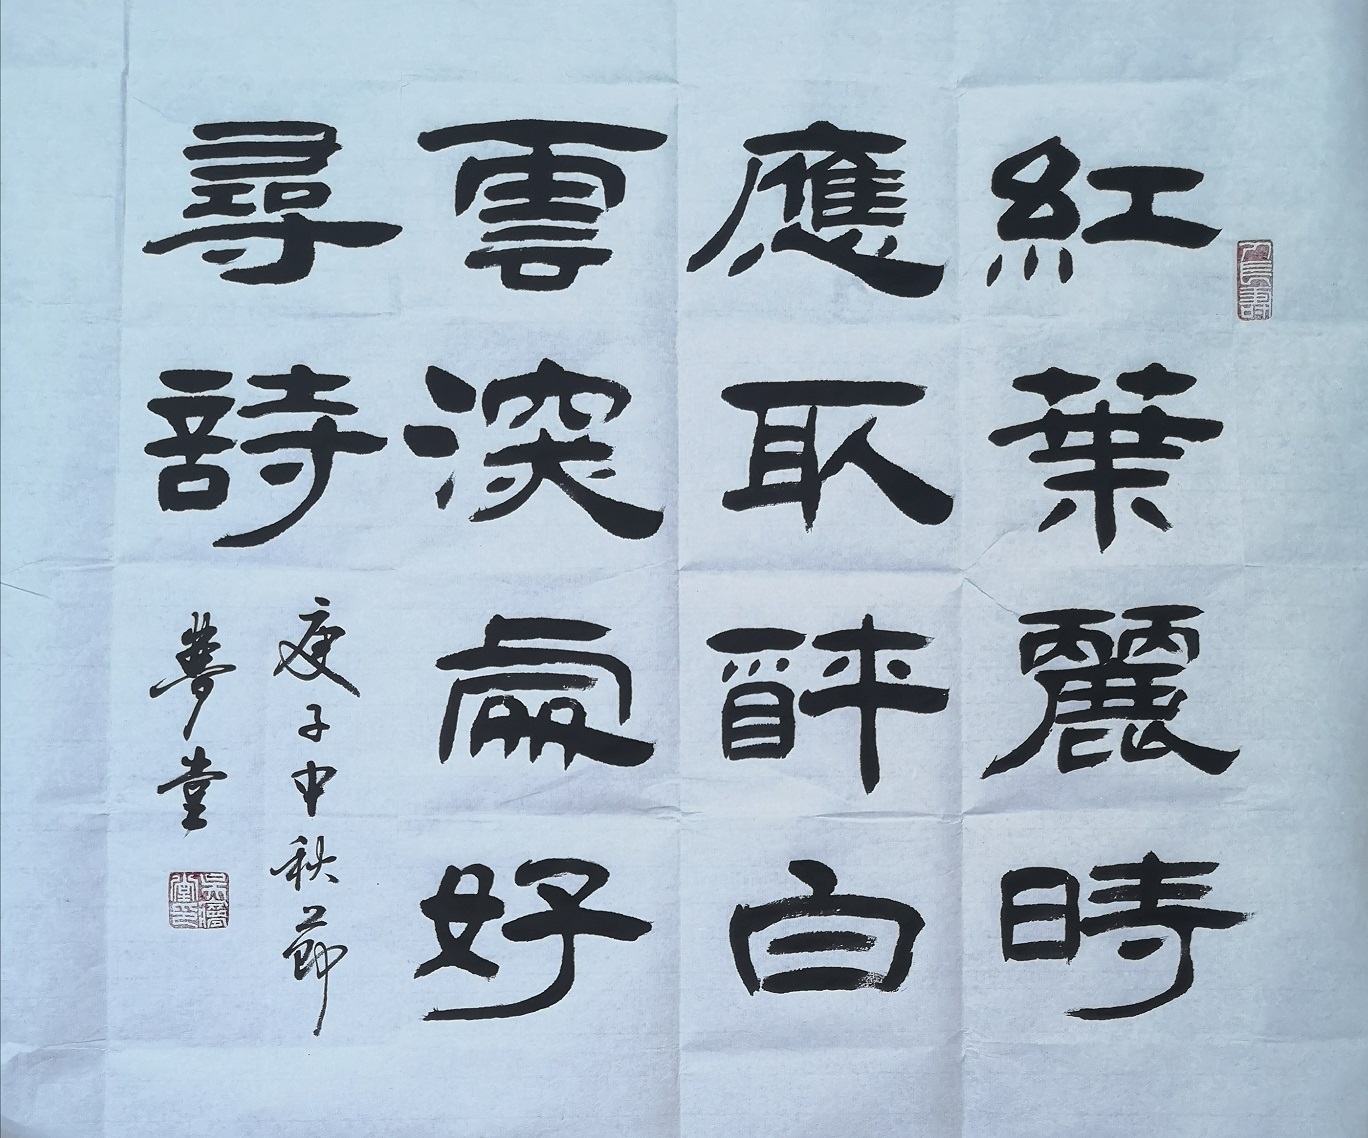 紅葉麗時
應取醉白
雲深處好
尋詩
庚子中秋節
夢堂
長壽